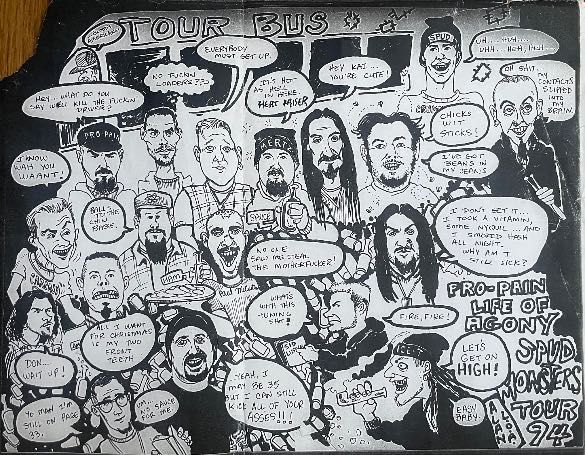 TOUR BUS
EVERYBODY
MUST GET UP.
NO FUCKIN
LOADERS???
HEY.. WHAT DO YOU
SAY WE'LL KILL THE FUCKIN
DRIVER?
IT'S HOT
AS HELL
IN HERE.
HEAT MISER
HEY KAT...
YOU'RE CUTE!
SPUD
UH...HUH...
UHH...HUH, HUH...
OH SHIT.
MY
CONTACTS
SLIPPED
INTO
MY
BRAIN.
CHICKS
WIT
STICKS!
I'VE GOT
BEANS IN
MY JEANS
PRO-PAIN
I KNOW
WAH YOU
WAANT!
BALL TO THE
CHIN
BABE.
SAUCE
NO ONE
SAW ME STEAL
THIS MOTHORFUCKER!
I DON'T GET IT.
I TOOK A VITAMIN,
SOME NYQUIL...AND
I SMOKED HASH
ALL NIGHT.
WHY AM I
STILL SICK?
WHATS
WITH THIS
TUNING
SHIT!
FIRE, FIRE!
ALL I WANT
FOR CHRISTMAS
IS MY TWO
FRONT
TEETH
DON...
WAIT UP!
YO MAN I'M
STILL ON PAGE
23.
NO SAUCE
FOR ME
YEAH, I
MAY BE 35
BUT I CAN STILL
KICK ALL OF YOUR
ASSES!!!
LET'S
GET ON
HIGH!
EASY
BABY.
PRO-PAIN
LIFE OF
AGONY
SPUD
MONSTERS
TOUR
94